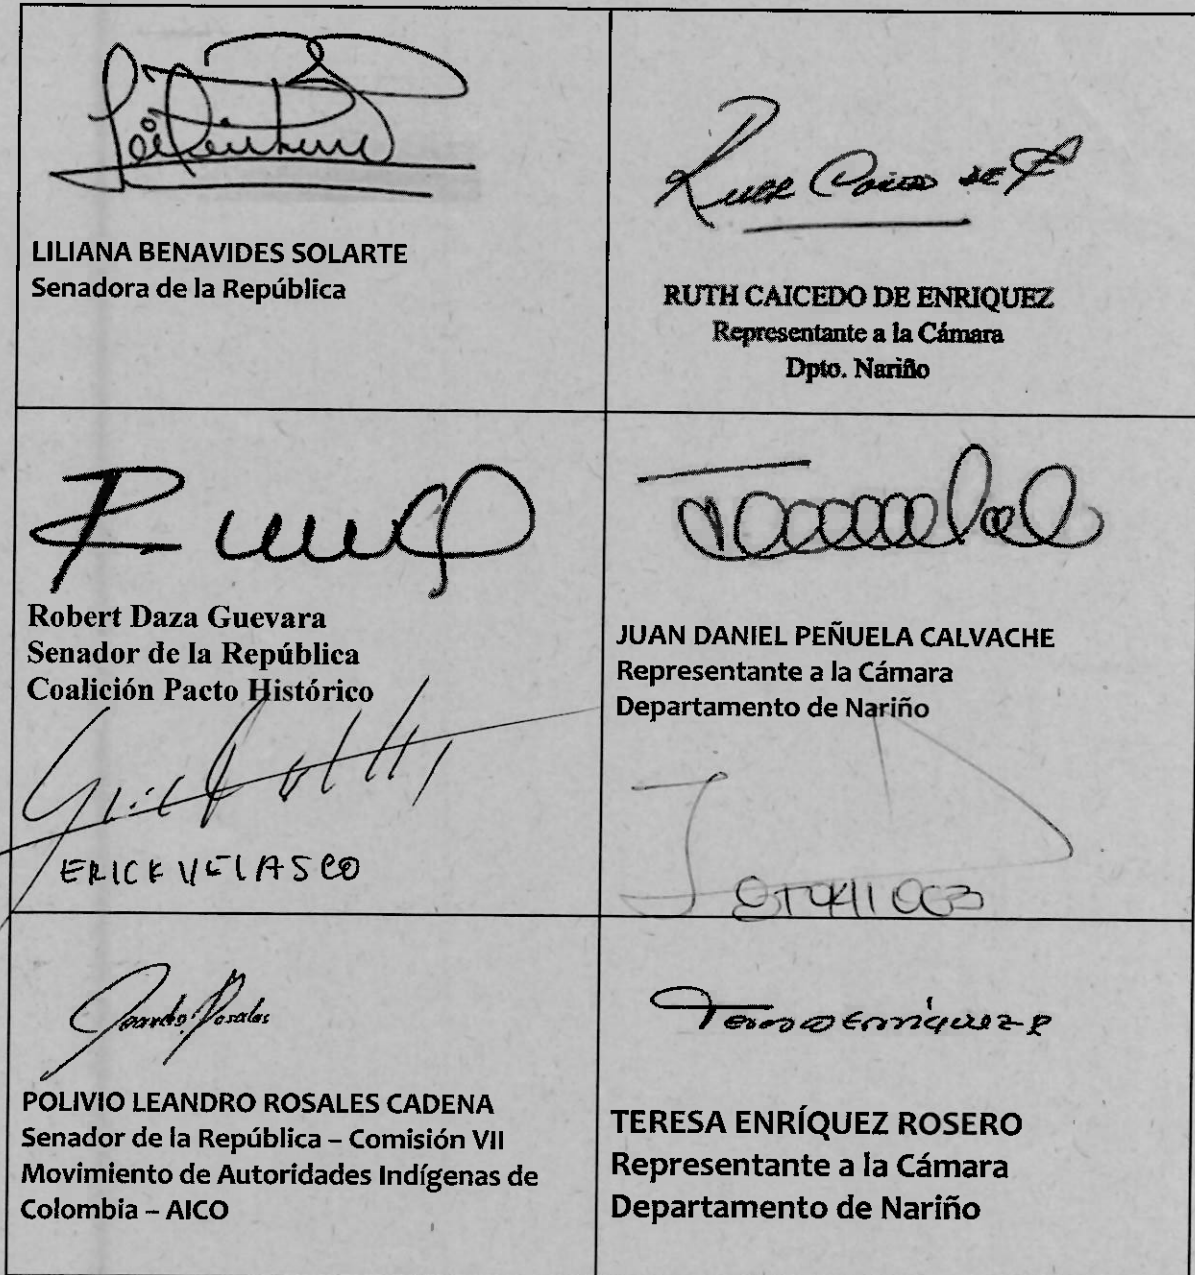 LILIANA BENAVIDES SOLARTE
Senadora de la República
RUTH CAICEDO DE ENRIQUEZ
Representante a la Cámara
Dpto. Nariño
Robert Daza Guevara
Senador de la República
Coalición Pacto Histórico
ERICK VELASCO
JUAN DANIEL PEÑUELA CALVACHE
Representante a la Cámara
Departamento de Nariño
Leandro Rosales
POLIVIO LEANDRO ROSALES CADENA
Senador de la República – Comisión VII
Movimiento de Autoridades Indígenas de
Colombia – AICO
Teresa Enríquez R
TERESA ENRÍQUEZ ROSERO
Representante a la Cámara
Departamento de Nariño